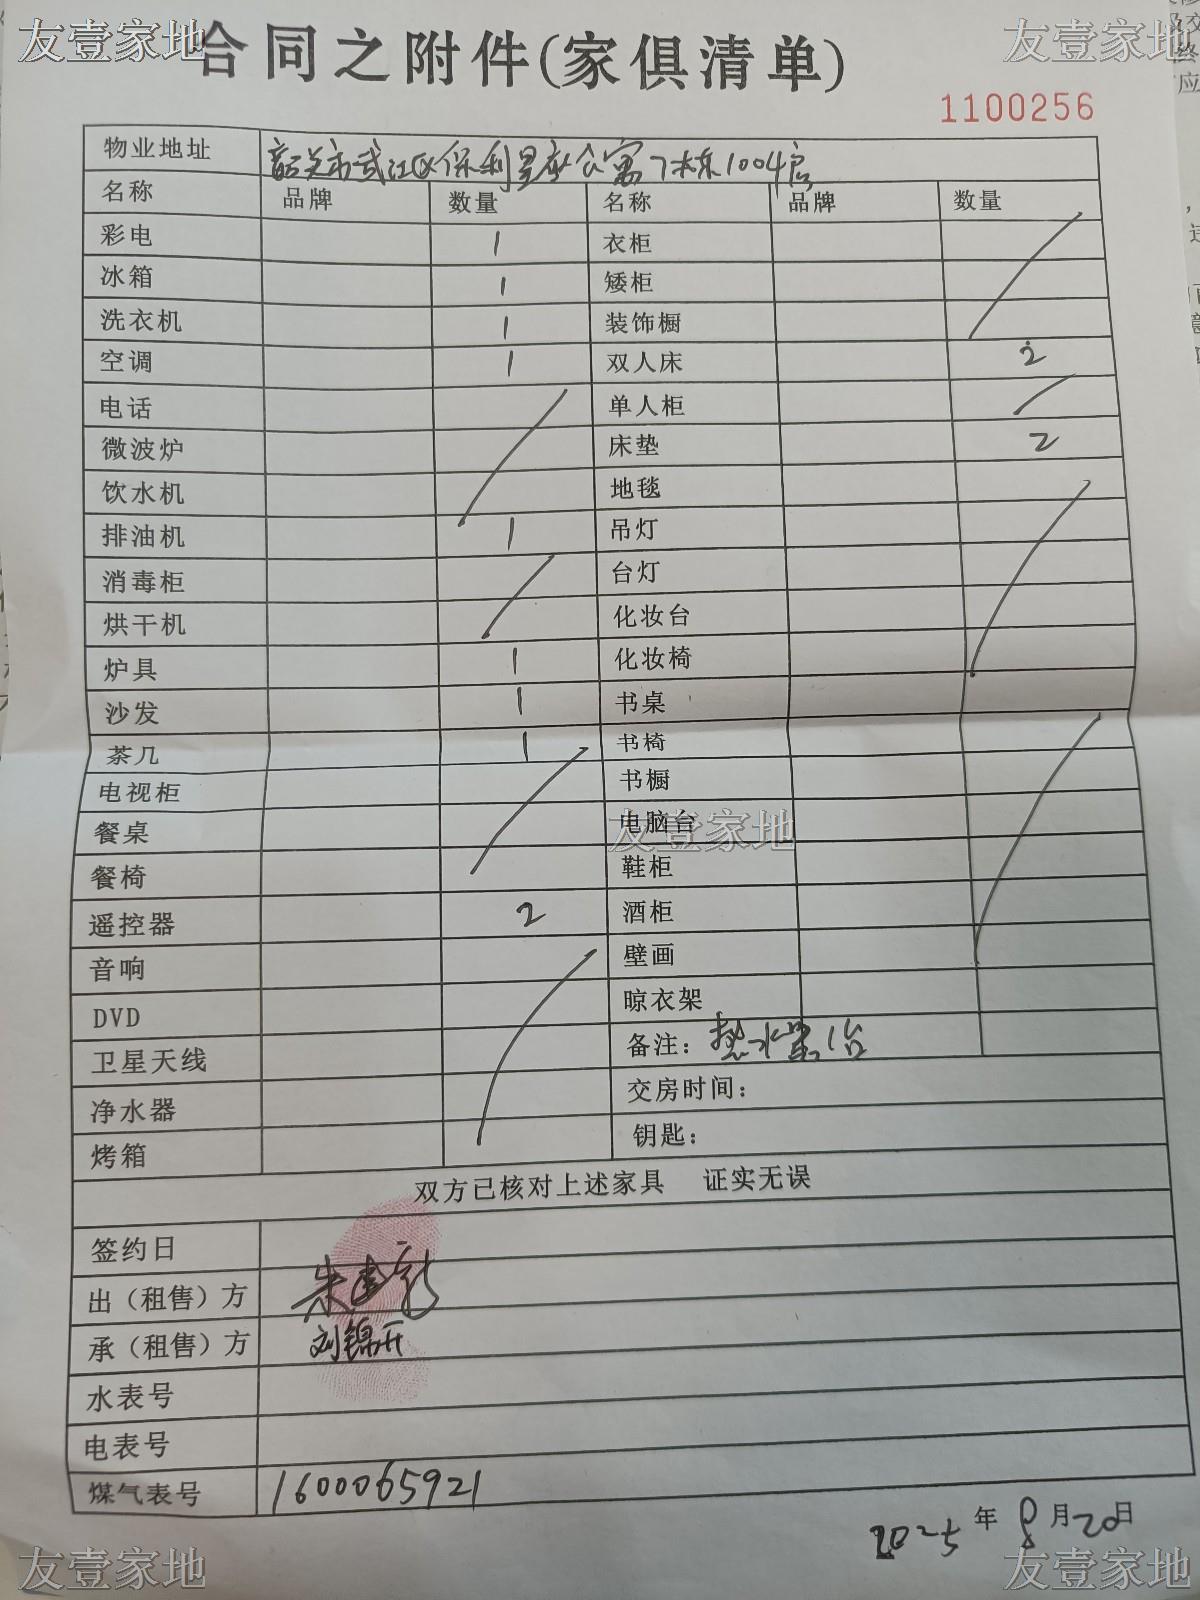 友壹家地
友壹家地
合同之附件(家俱清单)
1100256
物业地址 韶关市武江区保利星座公寓7栋东1004房
名称 品牌 数量 名称 品牌 数量
彩电 1 衣柜
冰箱 1 矮柜
洗衣机 1 装饰橱
空调 1 双人床 2
电话 单人柜
微波炉 床垫 2
饮水机 地毯
排油机 1 吊灯
消毒柜 台灯
烘干机 化妆台
炉具 1 化妆椅
沙发 1 书桌
茶几 1 书椅
电视柜 书橱
餐桌 电脑台
友壹家地
餐椅 鞋柜
遥控器 2 酒柜
音响 壁画
DVD 晾衣架
卫星天线 备注：热水器1台
净水器 交房时间：
烤箱 钥匙：
双方已核对上述家具 证实无误
签约日
出（租售）方 朱建新
承（租售）方 刘锦开
水表号
电表号
煤气表号 1600065921
2025年8月20日
友壹家地
友壹家地